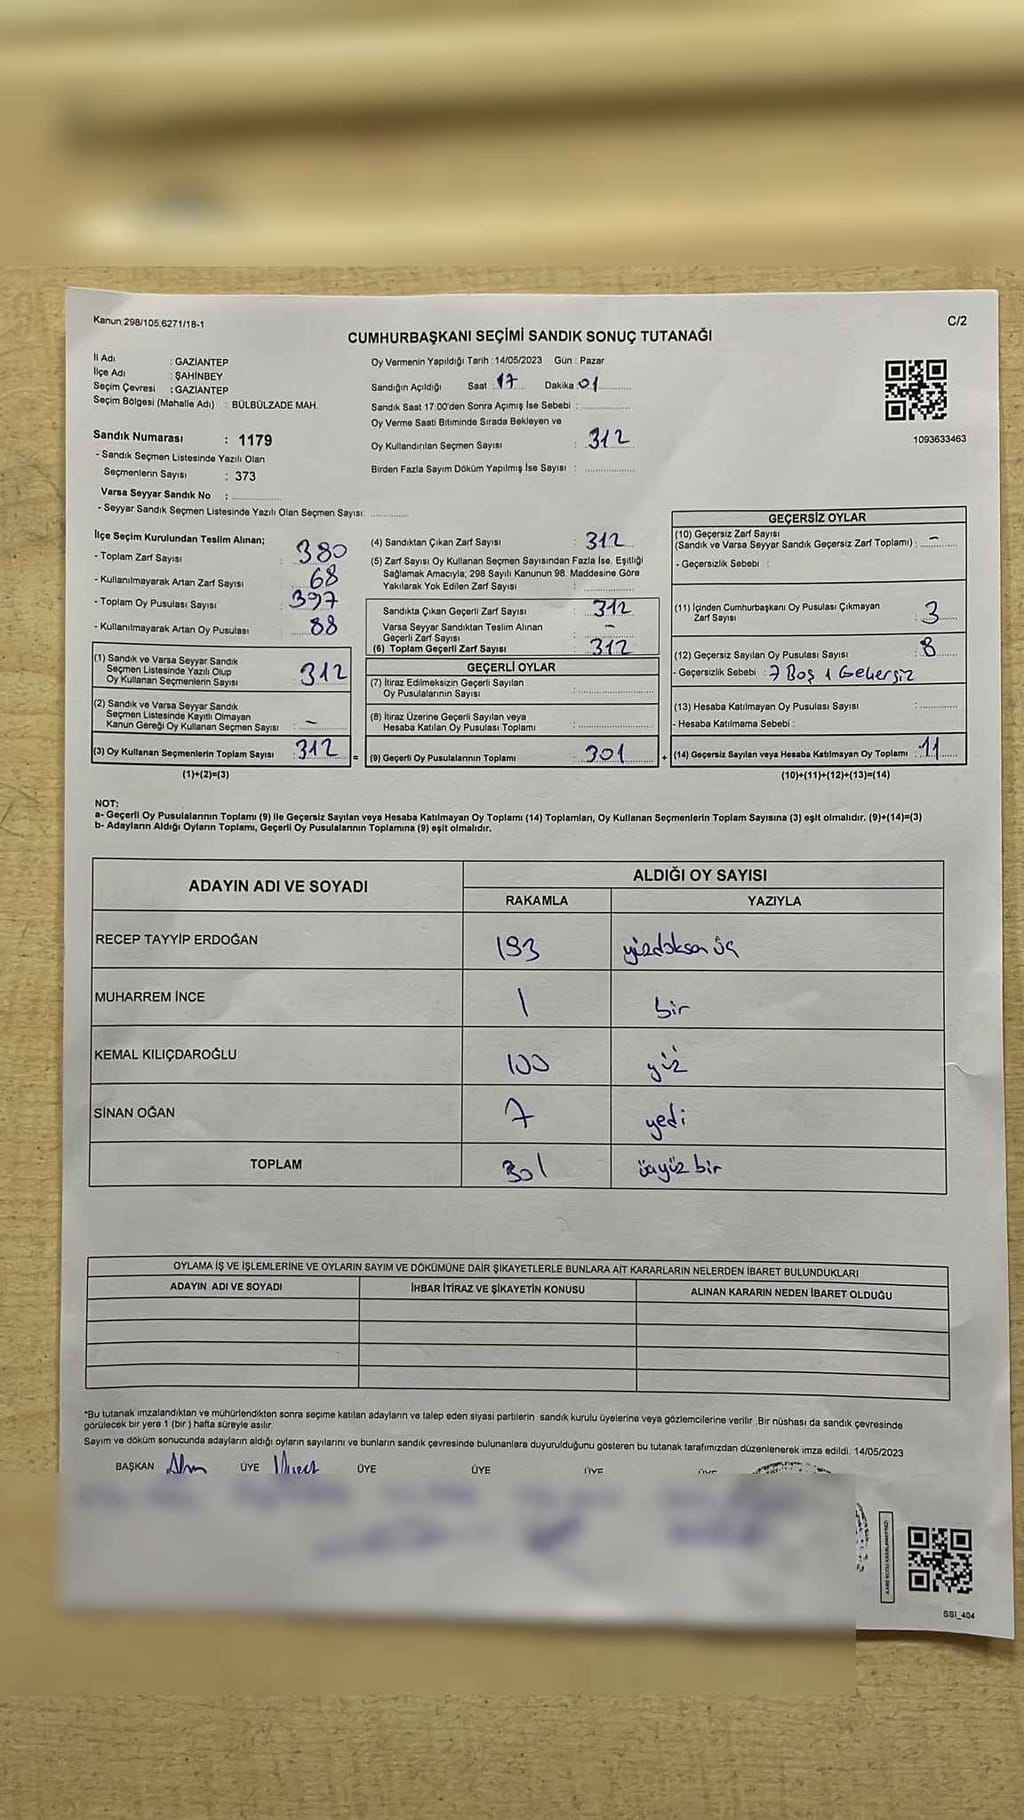 Kanun:298/105,6271/18-1
C/2
CUMHURBAŞKANI SEÇİMİ SANDIK SONUÇ TUTANAĞI
İl Adı : GAZİANTEP
İlçe Adı : ŞAHİNBEY
Seçim Çevresi : GAZİANTEP
Seçim Bölgesi (Mahalle Adı) : BÜLBÜLZADE MAH.
Sandık Numarası : 1179
- Sandık Seçmen Listesinde Yazılı Olan
Seçmenlerin Sayısı : 373
Varsa Seyyar Sandık No :
- Seyyar Sandık Seçmen Listesinde Yazılı Olan Seçmen Sayısı:
Oy Vermenin Yapıldığı Tarih :14/05/2023 Gün : Pazar
Sandığın Açıldığı Saat 17 Dakika 01
Sandık Saat 17:00'den Sonra Açımış İse Sebebi :
Oy Verme Saati Bitiminde Sırada Bekleyen ve
Oy Kullandırılan Seçmen Sayısı : 312
Birden Fazla Sayım Döküm Yapılmış İse Sayısı :
1093633463
İlçe Seçim Kurulundan Teslim Alınan;
- Toplam Zarf Sayısı : 380
- Kullanılmayarak Artan Zarf Sayısı : 68
- Toplam Oy Pusulası Sayısı : 397
- Kullanılmayarak Artan Oy Pusulası : 88
(1) Sandık ve Varsa Seyyar Sandık
Seçmen Listesinde Yazılı Olup
Oy Kullanan Seçmenlerin Sayısı 312
(2) Sandık ve Varsa Seyyar Sandık
Seçmen Listesinde Kayıtlı Olmayan
Kanun Gereği Oy Kullanan Seçmen Sayısı : -
(3) Oy Kullanan Seçmenlerin Toplam Sayısı 312
(1)+(2)=(3)
=
(4) Sandıktan Çıkan Zarf Sayısı : 312
(5) Zarf Sayısı Oy Kullanan Seçmen Sayısından Fazla İse, Eşitliği
Sağlamak Amacıyla, 298 Sayılı Kanunun 98. Maddesine Göre
Yakılarak Yok Edilen Zarf Sayısı :
Sandıkta Çıkan Geçerli Zarf Sayısı : 312
Varsa Seyyar Sandıktan Teslim Alınan
Geçerli Zarf Sayısı : -
(6) Toplam Geçerli Zarf Sayısı : 312
GEÇERLİ OYLAR
(7) İtiraz Edilmeksizin Geçerli Sayılan
Oy Pusulalarının Sayısı :
(8) İtiraz Üzerine Geçerli Sayılan veya
Hesaba Katılan Oy Pusulası Toplamı :
(9) Geçerli Oy Pusulalarının Toplamı : 301
+
GEÇERSİZ OYLAR
(10) Geçersiz Zarf Sayısı
(Sandık ve Varsa Seyyar Sandık Geçersiz Zarf Toplamı) : -
- Geçersizlik Sebebi :
(11) İçinden Cumhurbaşkanı Oy Pusulası Çıkmayan
Zarf Sayısı : 3
(12) Geçersiz Sayılan Oy Pusulası Sayısı : 8
- Geçersizlik Sebebi : 7 Boş 1 Gehersiz
(13) Hesaba Katılmayan Oy Pusulası Sayısı :
- Hesaba Katılmama Sebebi :
(14) Geçersiz Sayılan veya Hesaba Katılmayan Oy Toplamı : 11
(10)+(11)+(12)+(13)=(14)
NOT:
a- Geçerli Oy Pusulalarının Toplamı (9) ile Geçersiz Sayılan veya Hesaba Katılmayan Oy Toplamı (14) Toplamları, Oy Kullanan Seçmenlerin Toplam Sayısına (3) eşit olmalıdır. (9)+(14)=(3)
b- Adayların Aldığı Oyların Toplamı, Geçerli Oy Pusulalarının Toplamına (9) eşit olmalıdır.
ADAYIN ADI VE SOYADI
ALDIĞI OY SAYISI
RAKAMLA YAZIYLA
RECEP TAYYİP ERDOĞAN 193 yüzdoksan üç
MUHARREM İNCE 1 bir
KEMAL KILIÇDAROĞLU 100 yüz
SİNAN OĞAN 7 yedi
TOPLAM 301 üçyüz bir
OYLAMA İŞ VE İŞLEMLERİNE VE OYLARIN SAYIM VE DÖKÜMÜNE DAİR ŞİKAYETLERLE BUNLARA AİT KARARLARIN NELERDEN İBARET BULUNDUKLARI
ADAYIN ADI VE SOYADI İHBAR İTİRAZ VE ŞİKAYETİN KONUSU ALINAN KARARIN NEDEN İBARET OLDUĞU
*Bu tutanak imzalandıktan ve mühürlendikten sonra seçime katılan adayların ve talep eden siyasi partilerin sandık kurulu üyelerine veya gözlemcilerine verilir. Bir nüshası da sandık çevresinde
görülecek bir yere 1 (bir ) hafta süreyle asılır.
Sayım ve döküm sonucunda adayların aldığı oyların sayılarını ve bunların sandık çevresinde bulunanlara duyurulduğunu gösteren bu tutanak tarafımızdan düzenlenerek imza edildi. 14/05/2023
BAŞKAN ÜYE ÜYE ÜYE ÜYE ÜYE
SSI_404